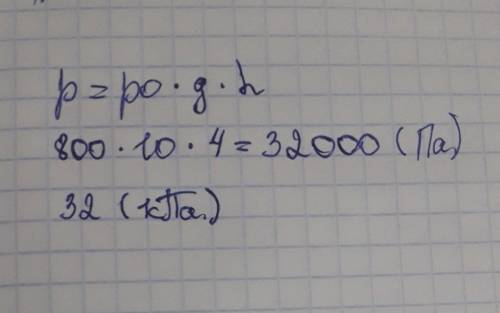 p = po · g · h
800 · 10 · 4 = 32000 (Па)
32 (кПа.)